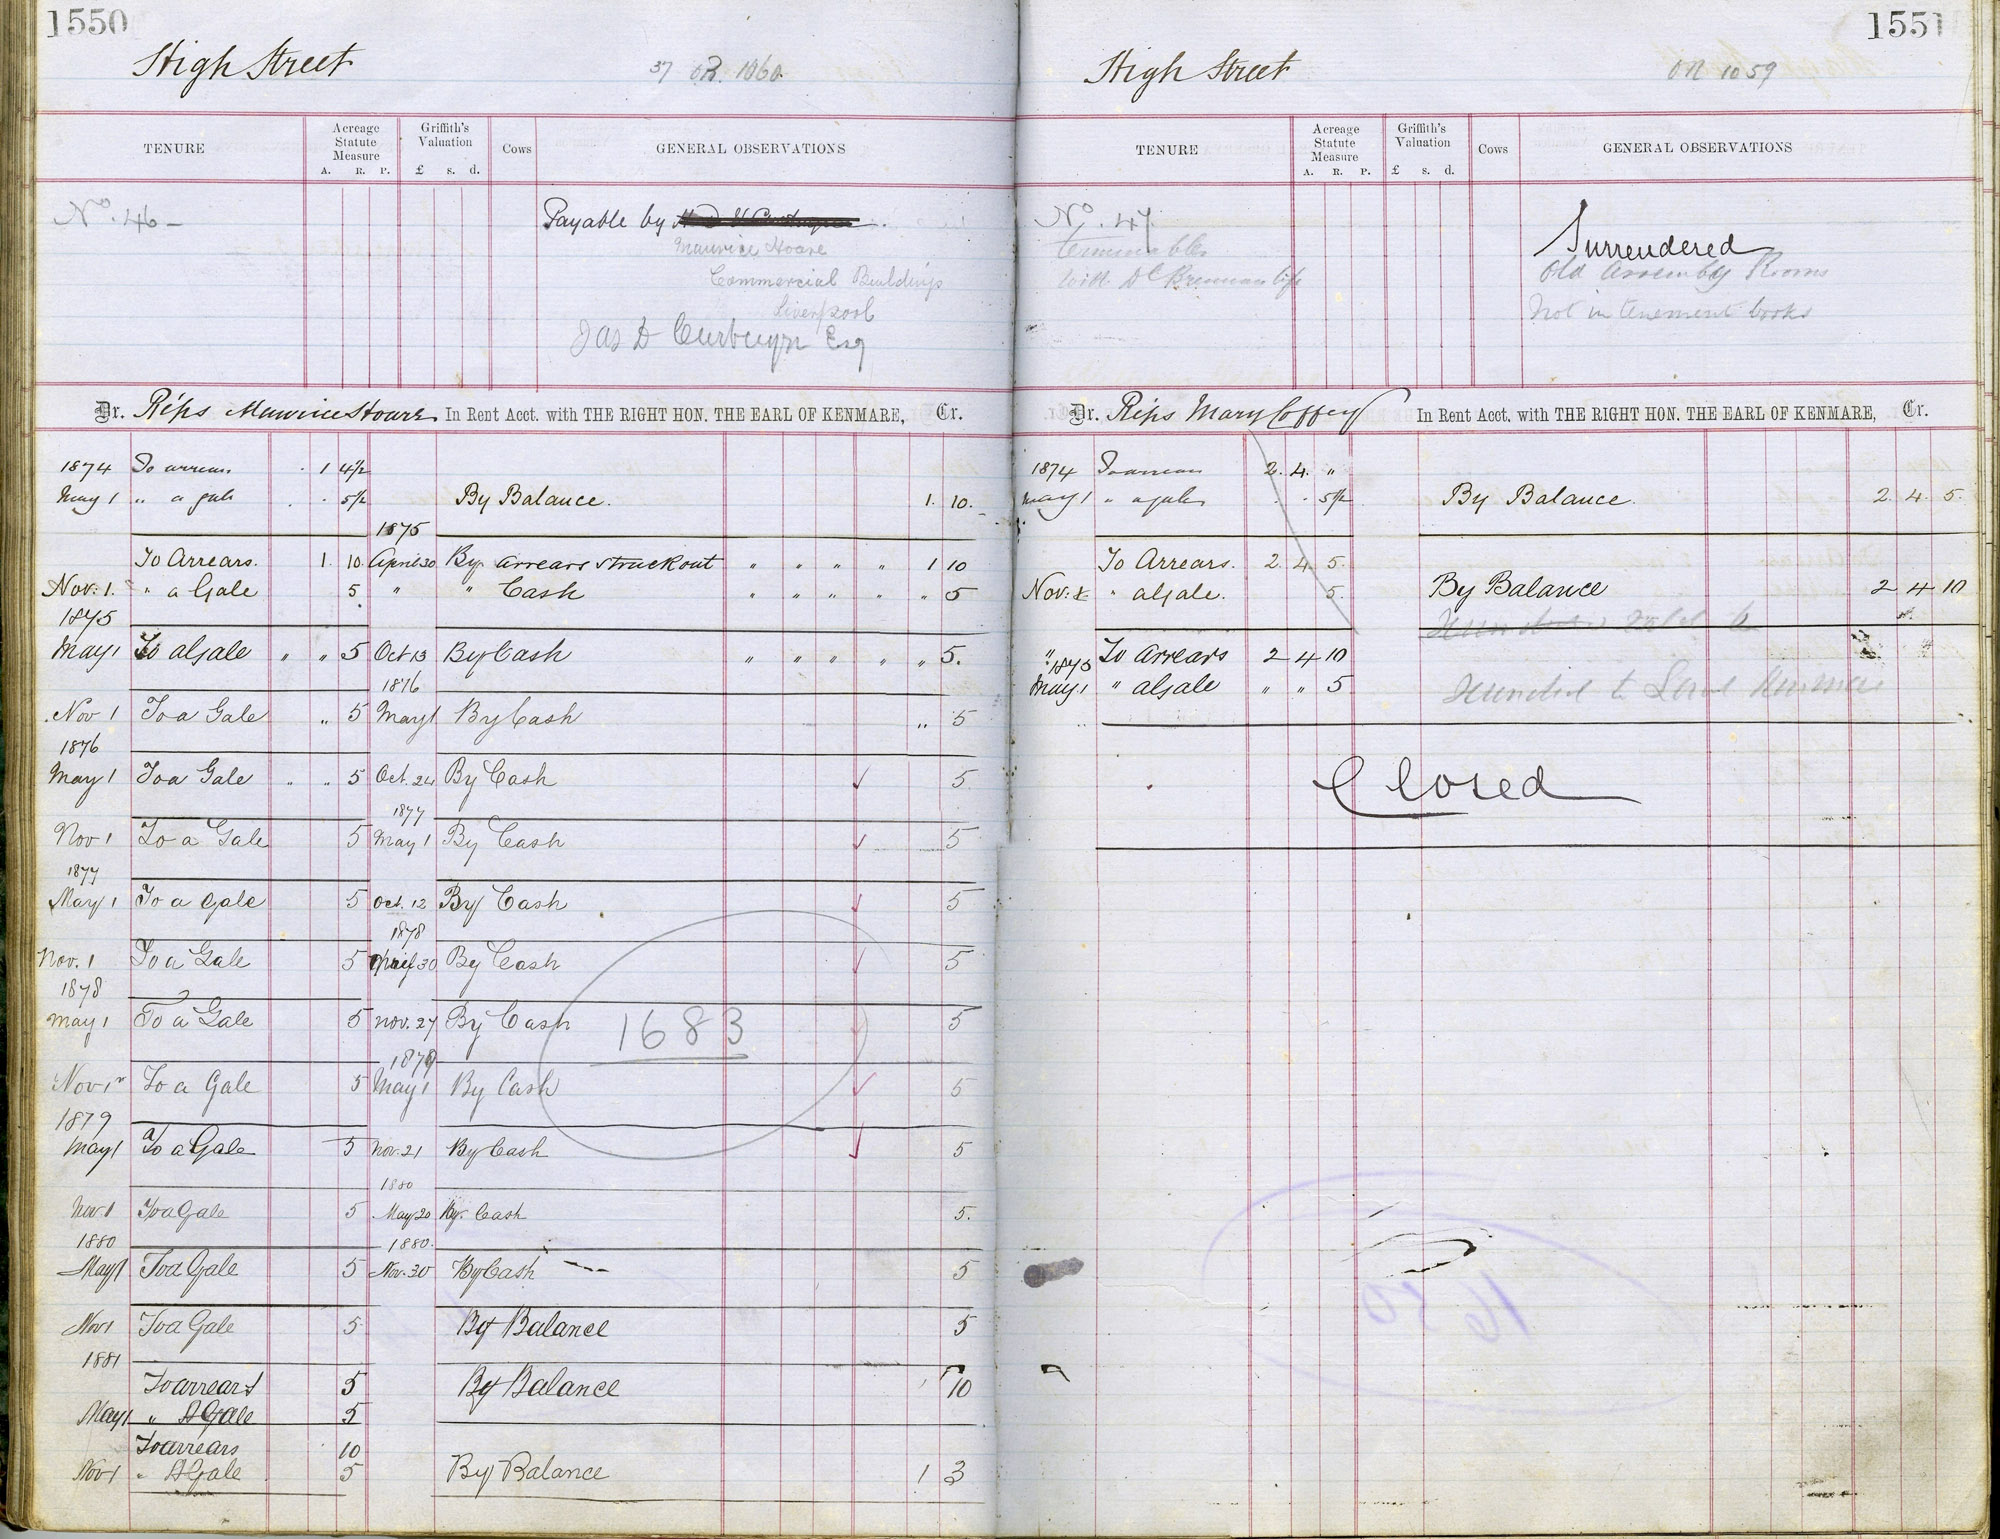 1550
High Street
37 OR. 1060.
TENURE Acreage Statute Measure Griffith's Valuation Cows GENERAL OBSERVATIONS
A. R. P. £ s. d.
No. 46 –
Payable by
Maurice Hoare
Commercial Buildings
Liverpool
Jas D Curtayn Esq
Dr. Reps Maurice Hoare In Rent Acct. with THE RIGHT HON. THE EARL OF KENMARE, Cr.
1874 To arrears . 1 4½
May 1 " a gale . . 5½ By Balance. 1. 10.
1875
To Arrears. 1. 10. April 30 By arrears struck out " " " " 1 10
Nov. 1. " a Gale 5 " " Cash " " " " " 5
1875
May 1 To a Gale " " 5 Oct 13 By Cash " " " " " 5.
1876
Nov 1 To a Gale " 5 May 1 By Cash " 5
1876
May 1 To a Gale " " 5 Oct. 24 By Cash 5
1877
Nov 1 To a Gale 5 May 1 By Cash 5
1877
May 1 To a Gale 5 Oct. 12 By Cash 5
1878
Nov. 1 To a Gale 5 April 30 By Cash 5
1878
May 1 To a Gale 5 Nov. 27 By Cash 5
1683
1879
Nov 1 To a Gale 5 May 1 By Cash 5
1879
May 1 To a Gale 5 Nov. 21 By Cash 5
1880
Nov. 1 To a Gale 5 May 20 By. Cash 5.
1880 1880.
May 1 To a Gale 5 Nov. 30 By Cash 5
Nov 1 To a Gale 5 By Balance 5
1881
To arrears 5 By Balance 10
May 1 " A Gale 5
To arrears 10
Nov 1 " A Gale 5 By Balance 1 3
1551
High Street
OR 1059
TENURE Acreage Statute Measure Griffith's Valuation Cows GENERAL OBSERVATIONS
A. R. P. £ s. d.
No. 47
terminable
with Dc Brennan life
Surrendered
Old Assembly Rooms
Not in tenement books
Dr. Reps Mary Coffey In Rent Acct. with THE RIGHT HON. THE EARL OF KENMARE, Cr.
1874 To arrears 2. 4. "
May 1 " a gale . . 5½ By Balance. 2. 4. 5.
To Arrears. 2. 4. 5.
Nov. 1 " a Gale. 5. By Balance 2 4 10
" To Arrears 2 4 10
1875
May 1 " a Gale " " 5
Closed
1650